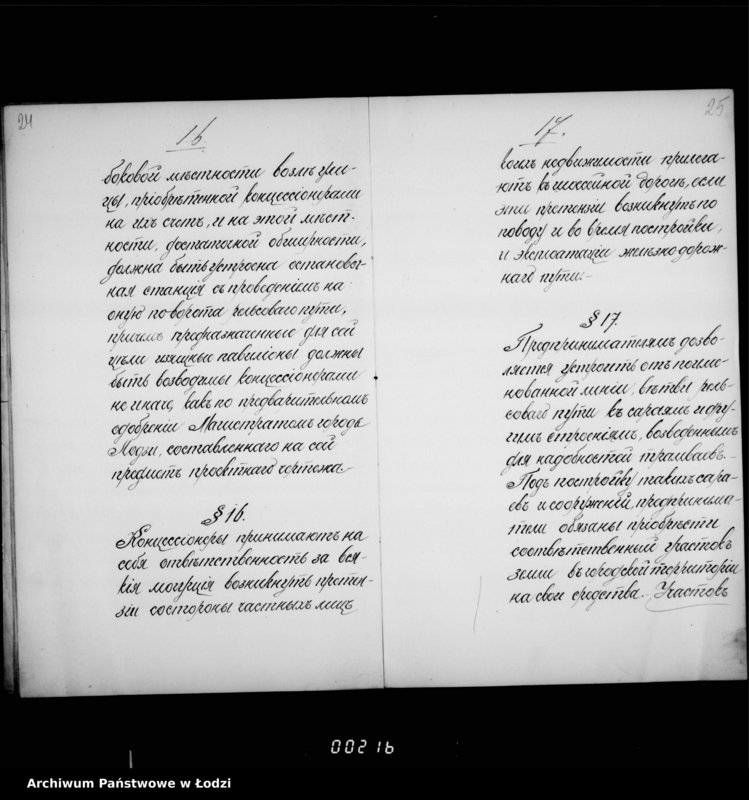 24
16.
боковой мѣстности возлѣ ули-
цы, пріобрѣтенной концессіонерами
на ихъ счетъ, и на этой мѣст-
ности, достаточной обширности,
должна быть устроена остановоч-
ная станція съ проведеніемъ на
оную поворота рельсоваго пути,
причемъ предназначенные для сей
цѣли изящные павильоны должны
быть возводимы концессіонерами
не иначе, какъ по предварительномъ
одобреніи Магистратомъ города
Лодзи, составленнаго на сей
предметъ проэктнаго чертежа.
§ 16.
Концессіонеры принимаютъ на
себя отвѣтственность за вся-
кія могущія возникнуть претен-
зіи со стороны частныхъ лицъ
25
17.
коихъ недвижимости прилега-
ютъ къ шоссейной дорогѣ, если
эти претензіи возникнутъ по
поводу и во время постройки,
и эксплоатаціи желѣзнодорож-
наго пути.-
§ 17.
Предпринимателямъ дозво-
ляется устроить отъ поиме-
нованной линіи, вѣтви рель-
соваго пути къ сараямъ и дру-
гимъ строеніямъ, возведеннымъ
для надобностей трамваевъ.-
Подъ постройку такихъ сара-
евъ и сооруженій, предпринима-
тели обязаны пріобрѣсти
соотвѣтственный участокъ
земли въ городской территоріи
на свои средства.- Участокъ
00216
Archiwum Państwowe w Łodzi